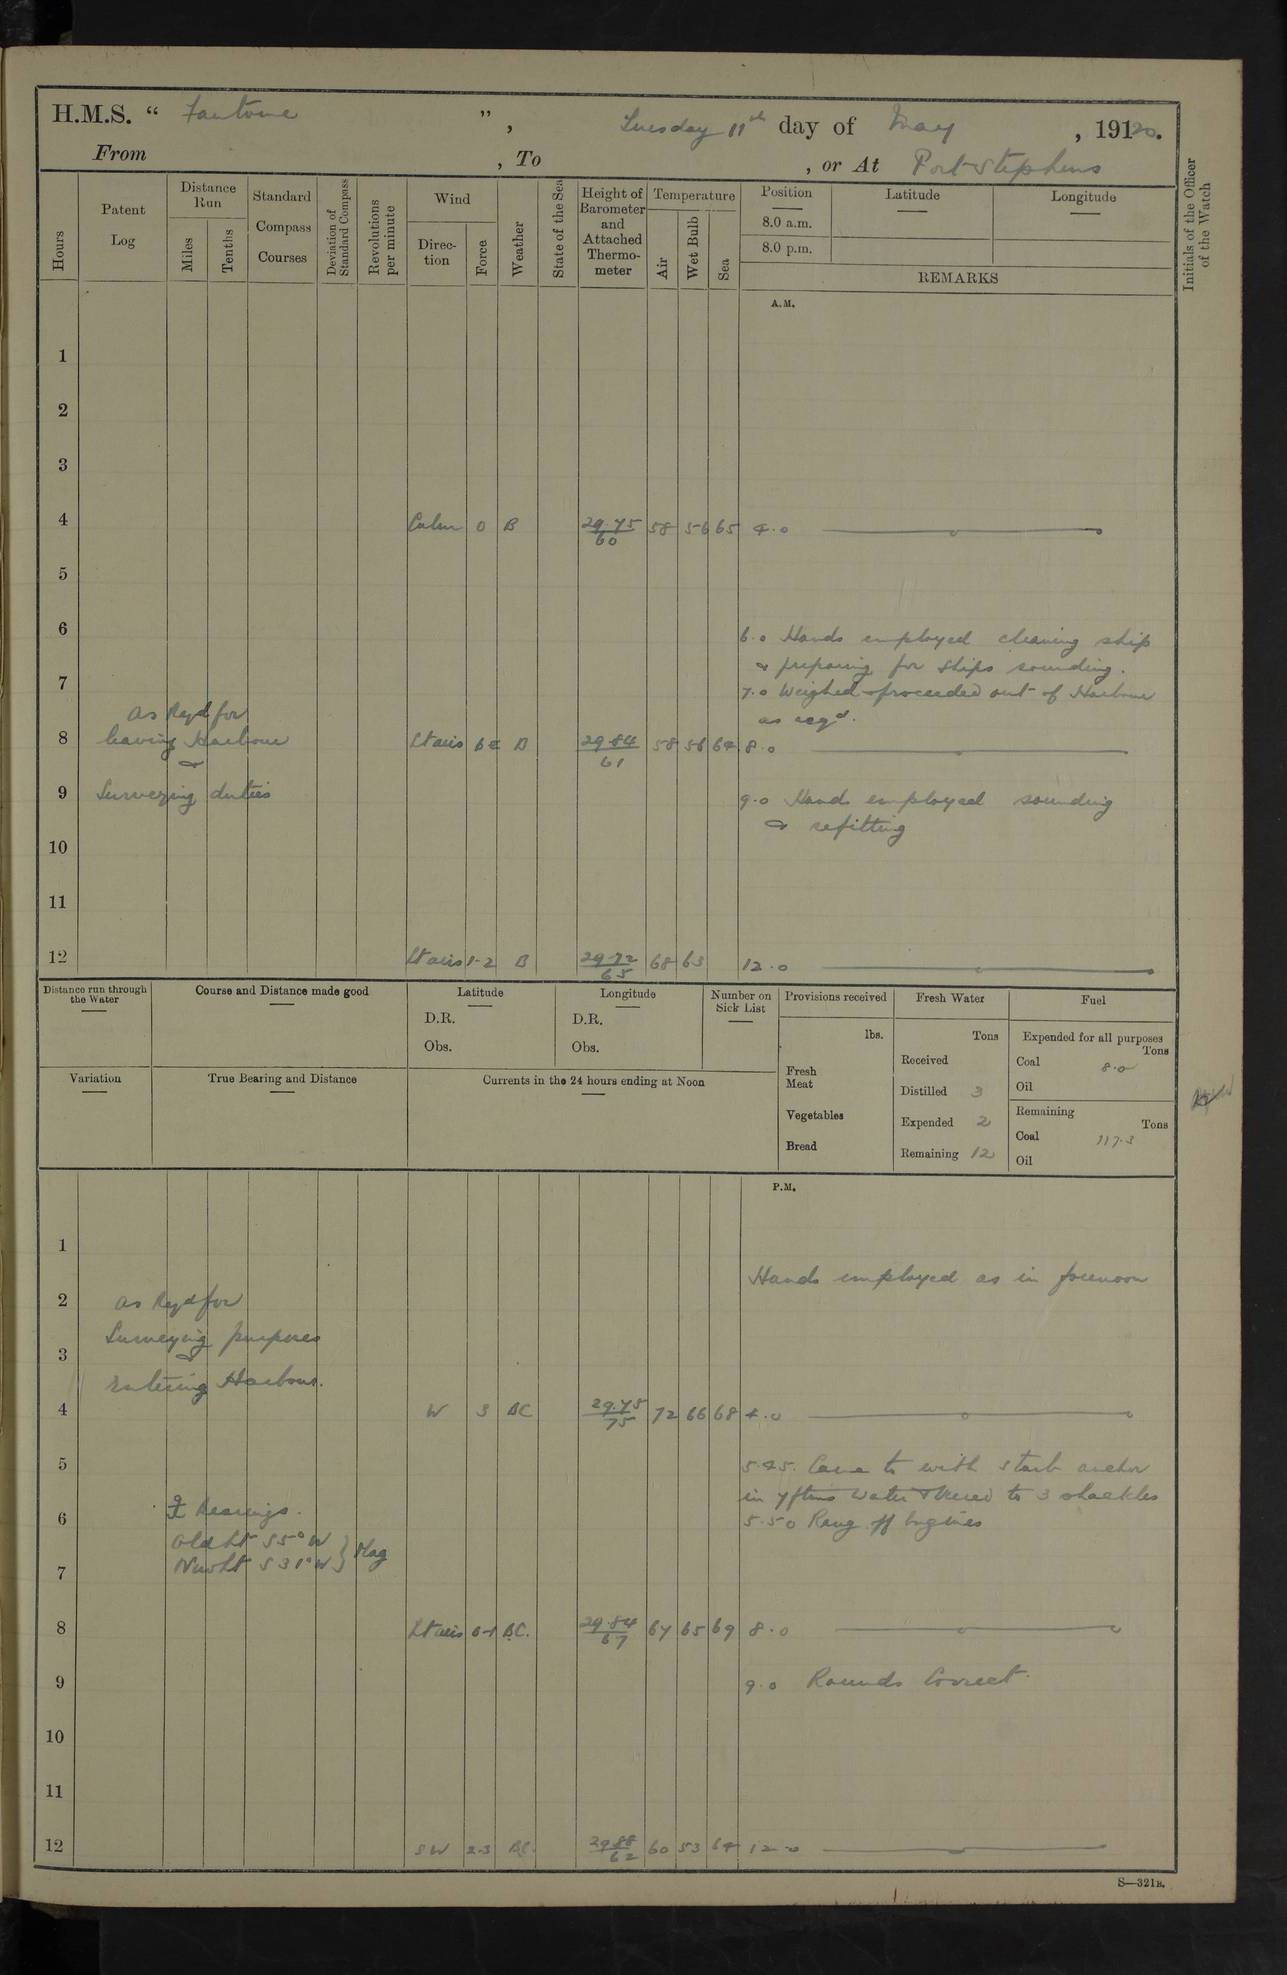 H.M.S. “ Fantome ”, Tuesday 11th day of May , 19120.
From , To , or At Port Stephens
Hours
Patent Log
Distance Run
Miles
Tenths
Standard Compass Courses
Deviation of Standard Compass
Revolutions per minute
Wind
Direc-tion
Force
Weather
State of the Sea
Height of Barometer and Attached Thermo-meter
Temperature
Air
Wet Bulb
Sea
Position
8.0 a.m.
8.0 p.m.
Latitude
Longitude
REMARKS
Initials of the Officer of the Watch
A.M.
1
2
3
4 Calm 0 B 29.75 60 58 56 65 4.0
5
6 6.0 Hands employed cleaning ship
& preparing for ships sounding.
7 7.0 Weighed & proceeded out of Harbour
As Reqd for as reqd.
8 leaving Harbour Lt airs B 29.84 61 58 56 64 8.0
&
9 Surveying duties 9.0 Hands employed sounding
& refitting
10
11
12 Lt airs 1-2 B 29.72 65 68 63 12.0
Distance run through the Water
Course and Distance made good
Latitude
D.R.
Obs.
Longitude
D.R.
Obs.
Number on Sick List
Provisions received
lbs.
Fresh Meat
Vegetables
Bread
Fresh Water
Tons
Received
Distilled 3
Expended 2
Remaining 12
Fuel
Expended for all purposes
Tons
Coal 8.0
Oil
Remaining
Tons
Coal 117.3
Oil
Variation
True Bearing and Distance
Currents in the 24 hours ending at Noon
P.M.
1
Hands employed as in forenoon
2 As Reqd for
Surveying purposes
3 &
entering Harbour.
4 W 3 BC 29.78 75 72 66 68 4.0
5 5.45. Came to with starb anchor
in 7 ftms water & veered to 3 shackles
Bearings.
6 5.50 Rang off Engines
Old Lt S 5° W
New Lt S 31° W } Mag
7
8 Lt airs 0-1 BC. 29.84 67 67 65 69 8.0
9 9.0 Rounds Correct.
10
11
12 SW 2-3 BC. 29.88 62 60 53 64 12.0
S—321B.